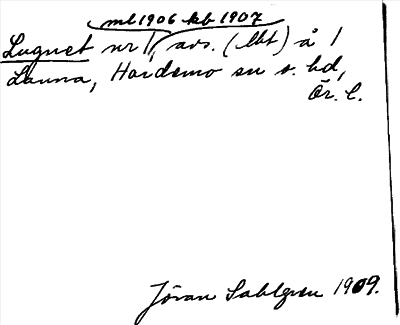 mb 1906 kb 1907
Lugnet nr 1, avs. (lht) å 1
Lanna, Hardemo sn o. hd,
Ör. l.
Jöran Sahlgren 1909.